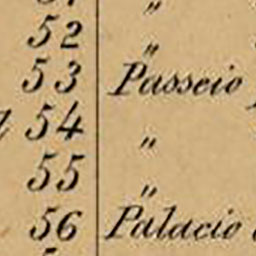 52 "
53 Passeio
54 "
55 "
56 Palacio